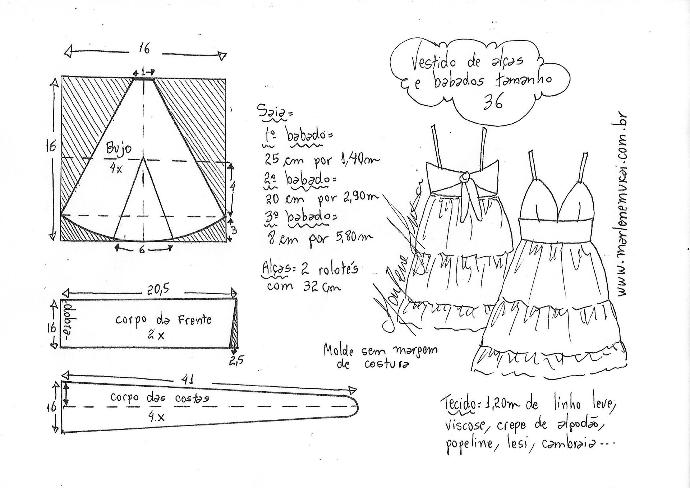 Vestido de alças
e babados tamanho
36
16
1
16
Bojo
4x
4
3
6
Saia=
1º babado=
25 cm por 1,40m
2º babado=
20 cm por 2,90m
3º babado=
8 cm por 5,80m
Alças= 2 rolotês
com 32 cm
20,5
16
dobra
corpo da Frente
2x
2,5
41
16
corpo das costas
4x
Molde sem margem
de costura
Marlene Mukai
www.marlenemukai.com.br
Tecido= 1,20m de linho leve,
viscose, crepe de algodão,
popeline, lesi, cambraia...